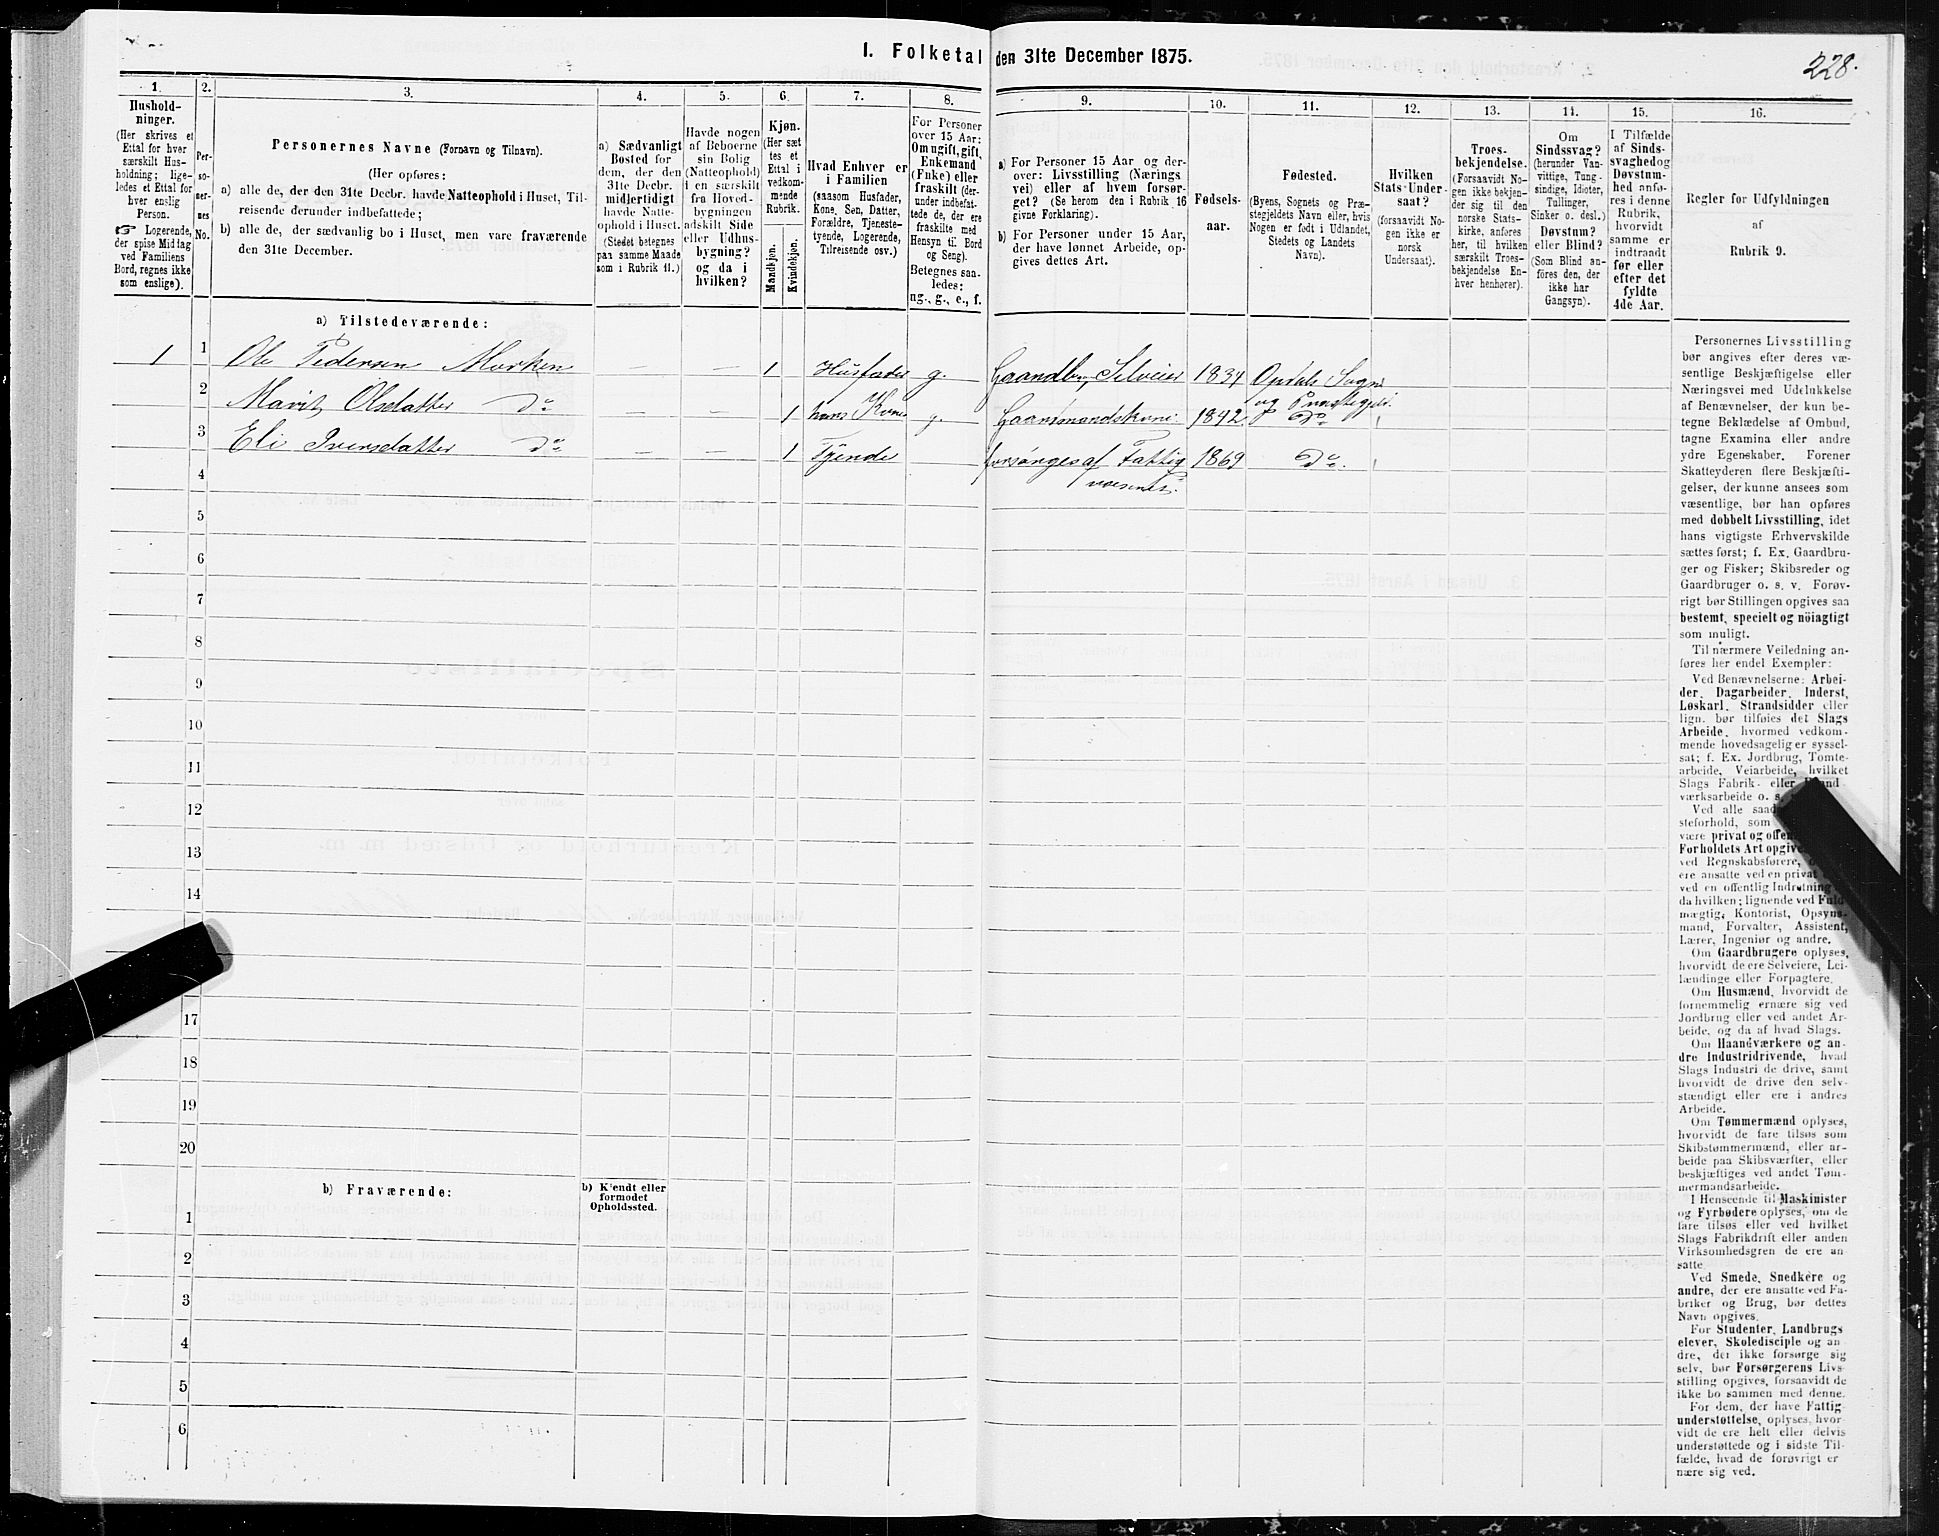 I. Folketal den 31te December 1875.
228.
1.
Hushold-
ninger.
(Her skrives et
Ettal for hver
særskilt Hus-
holdning; lige-
ledes et Ettal for
hver enslig
Person.
☞ Logerende,
der spise Middag
ved Familiens
Bord, regnes ikke
som enslige).
2.
Per-
so-
ner-
nes
No.
3.
Personernes Navne (Fornavn og Tilnavn).
(Her opføres:
a) alle de, der den 31te Decbr. havde Natteophold i Huset, Til-
reisende derunder indbefattede;
b) alle de, der sædvanlig bo i Huset, men vare fraværende
den 31te December.
4.
a) Sædvanligt
Bosted for
dem, der den
31te Decbr.
midlertidigt
havde Natte-
ophold i Huset.
(Stedet betegnes
paa samme Maade
som i Rubrik 11.)
5.
Havde nogen
af Beboerne
sin Bolig
(Natteophold)
i en særskilt
fra Hoved-
bygningen
adskilt Side
eller Udhus-
bygning?
og da i
hvilken?
6.
Kjøn.
(Her sæt
tes et
Ettal i
vedkom-
mende
Rubrik.
Mandkjøn.
Kvindekjøn.
7.
Hvad Enhver er
i Familien
(saasom Husfader,
Kone, Søn, Datter,
Forældre, Tjeneste-
tyende, Logerende,
Tilreisende osv.)
8.
For Personer
over 15 Aar:
Om ugift, gift,
Enkemand
(Enke) eller
fraskilt (der-
under indbefat-
tede de, der ere
fraskilte med
Hensyn til Bord
og Seng).
Betegnes saa-
ledes:
ug., g., e., f.
9.
a) For Personer 15 Aar og der-
over: Livsstilling (Nærings
vei) eller af hvem forsør-
get? (Se herom den i Rubrik 16
givne Forklaring).
b) For Personer under 15 Aar,
der have lønnet Arbeide, op-
gives dettes Art.
10.
Fødsels-
aar.
11.
Fødested.
(Byens, Sognets og Præ-
stegjeldets Navn eller, hvis
Nogen er født i Udlandet,
Stedets og Landets
Navn).
12.
Hvilken
Stats-Under-
saat?
(forsaavidt No-
gen ikke er
norsk
Undersaat).
13.
Troes-
bekjendelse.
(Forsaavidt No-
gen ikke bekjen-
der sig til den
norske Stats-
kirke, anføres
her, til hvilken
særskilt Troes-
bekjendelse En-
hver henhører).
14.
Om
Sindssvag?
(herunder Van-
vittige, Tung-
sindige, Idioter,
Tullinger,
Sinker o. desl.)
Døvstum?
eller Blind?
(Som Blind an-
føres den, der
ikke har
Gangsyn).
15.
I Tilfælde
af Sinds-
svaghed og
Døvstum-
hed anfø-
res i denne
Rubrik,
hvorvidt
samme er
indtraadt
før eller
efter det
fyldte
4de Aar.
16.
Regler for Udfyldningen
af
Rubrik 9.
a) Tilstedeværende:
1 1 Ole Pedersen Morken — — 1 Husfader g. Gaardbr. Selveier 1834 Opdals Sogn
og Præstegjeld.
2 Marit Olsdatter do — — 1 hans Kone g. Gaardmandskone. 1842 do
3 Eli Iversdatter do — — 1 Tjende forsørges af Fattig 1869 do.
væsenet.
4
5
6
7
8
9
10
11
12
13
14
17
18
19
20
b) Fraværende:
b) Kjendt eller
formodet
Opholdssted.
1
2
3
4
5
6
Personernes Livsstilling
bør angives efter deres væ-
sentlige Beskjæftigelse eller
Næringsvei med Udelukkelse
af Benævnelser, der kun be-
tegne Beklædelse af Ombud,
tagne Examina eller andre
ydre Egenskaber. Forener
Skatteyderen flere Beskjæfti-
gelser, der kunne ansees som
væsentlige, bør han opføres
med dobbelt Livsstilling, idet
hans vigtigste Erhvervskilde
sættes først; f. Ex. Gaardbru-
ger og Fisker; Skibsreder og
Gaardbruger o. s. v. Forøv-
rigt bør Stillingen opgives saa
bestemt, specielt og nöiagtigt
som muligt.
Til nærmere Veiledning an-
føres her endel Exempler:
Ved Benævnelserne: Arbei-
der, Dagarbeider, Inderst,
Løskarl, Strandsidder eller
lign. bør tilføies det Slags
Arbeide, hvormed vedkom-
mende hovedsagelig er syssel-
sat; f. Ex. Jordbrug, Tomte-
arbeide, Veiarbeide, hvilket
Slags Fabrik- eller
værksarbeide o. s.
Ved alle
steforhold, som
være privat og
Forholdets Art
ved Regnskabsførere,
ere ansatte ved en privat
ved en offentlig Indretning
da hvilken; lignende ved Fuld
mægtig, Kontorist, Opsyns-
mand, Forvalter, Assistent,
Lærer, Ingeniør og andre.
Om Gaardbrugere oplyses,
hvorvidt de ere Selveiere, Lei-
lændinge eller Forpagtere.
Om Husmænd, hvorvidt de
fornemmelig ernære sig ved
Jordbrug eller ved andet Ar-
beide, og da af hvad Slags.
Om Haandværkere og an-
dre Industridrivende, hvad
Slags Industri de drive, samt
hvorvidt de drive den selv-
stændigt eller ere i andres
Arbeide.
Om Tømmermænd oplyses,
hvorvidt de fare tilsøs som
Skibstømmermænd, eller ar-
beide paa Skibsværfter, eller
beskjæftiges ved andet Tøm-
mermandsarbeide.
I Henseende til Maskinister
og Fyrbødere oplyses, om de
fare tilsøs eller ved hvilket
Slags Fabrikdrift eller anden
Virksomhedsgren de ere an-
satte.
Ved Smede, Snedkere og
andre, der ere ansatte ved Fa-
briker og Brug, bør dettes
Navn opgives.
For Studenter, Landbrugs
elever, Skoledisciple og an
dre, der ikke forsørge sig
selv, bør Forsørgerens Livs-
stilling opgives, forsaavidt de
ikke bo sammen med denne.
For dem, der have Fattig-
understøttelse, oplyses, hvor-
vidt de ere helt eller delvis
understøttede og i sidste Til-
fælde, hvad de forøvrigt er
nære sig ved.